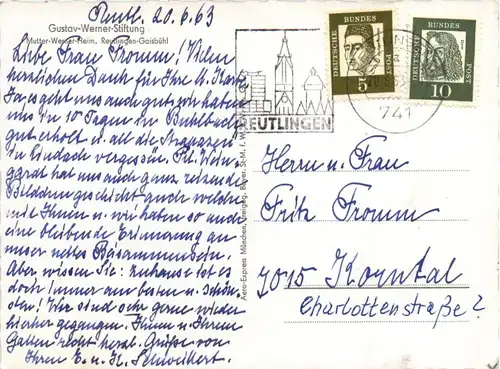 Reutl. 20.6.63
Gustav-Werner-Stiftung
Mutter-Werner-Heim, Reutlingen-Gaisbühl
Liebe Frau Fromm! Vielen
herzlichen Dank für Ihre Karte.
Ja es geht uns auch gut, wir haben
uns in 10 Tagen in Buhlbach
gut erholt u. all die Strapazen
in vergessen. Frl. Wein-
gart hat uns auch ganz reizende
Bildchen geschickt auch welche
mit Ihnen u. wir haben so auch
eine bleibende Erinnerung an
unser nettes Beisammensein.
Aber wissen Sie: zuhause ist es
doch immer am besten u. schön-
sten! Wir sind sehr gerne wieder
hierher gegangen. Ihnen u. Ihrem
Gatten recht herzl. Grüße von
Ihren E. u. K. Schweikert.
Aero-Express München, Freigeg. Bayer. St.-M. f. W.
REUTLINGEN
741
DEUTSCHE BUNDES POST
5
DEUTSCHE BUNDES POST
10
Herrn u. Frau
Fritz Fromm
7015 Korntal
Charlottenstraße?